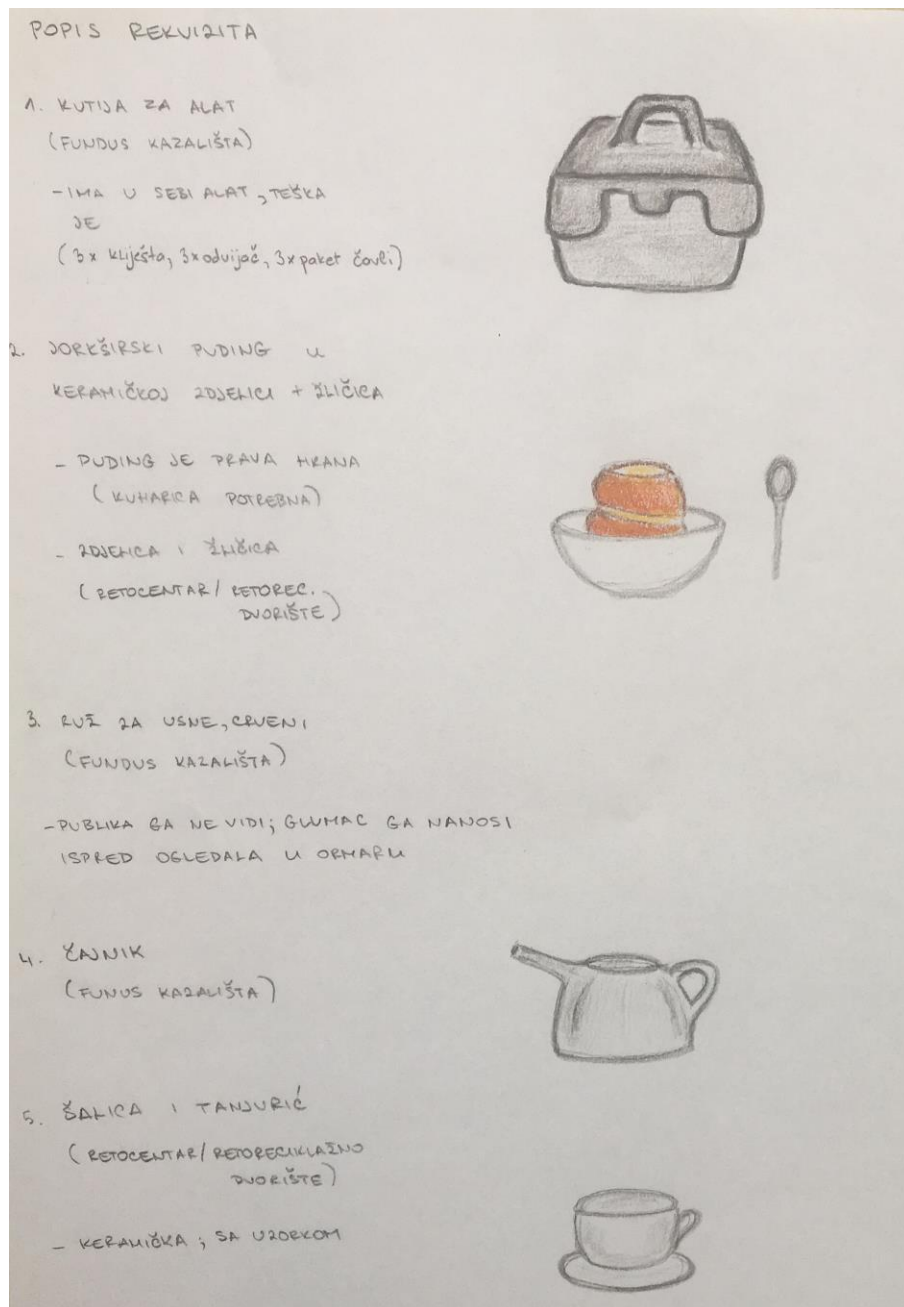 POPIS REKVIZITA
1. KUTIJA ZA ALAT
(FUNDUS KAZALIŠTA)
- IMA U SEBI ALAT, TEŠKA
JE
(3x kliješta, 3x odvijač, 3x paket čavli)
2. JORKŠIRSKI PUDING U
KERAMIČKOJ ZDJELICI + ŽLIČICA
- PUDING JE PRAVA HRANA
(KUHARICA POTREBNA)
- ZDJELICA I ŽLIČICA
(RETOCENTAR/RETOREC.
DVORIŠTE)
3. RUŽ ZA USNE, CRVENI
(FUNDUS KAZALIŠTA)
- PUBLIKA GA NE VIDI; GLUMAC GA NANOSI
ISPRED OGLEDALA U ORMARU
4. ČAJNIK
(FUNUS KAZALIŠTA)
5. ŠALICA I TANJURIĆ
(RETOCENTAR/RETORECIKLAŽNO
DVORIŠTE)
- KERAMIČKA; SA UZORKOM